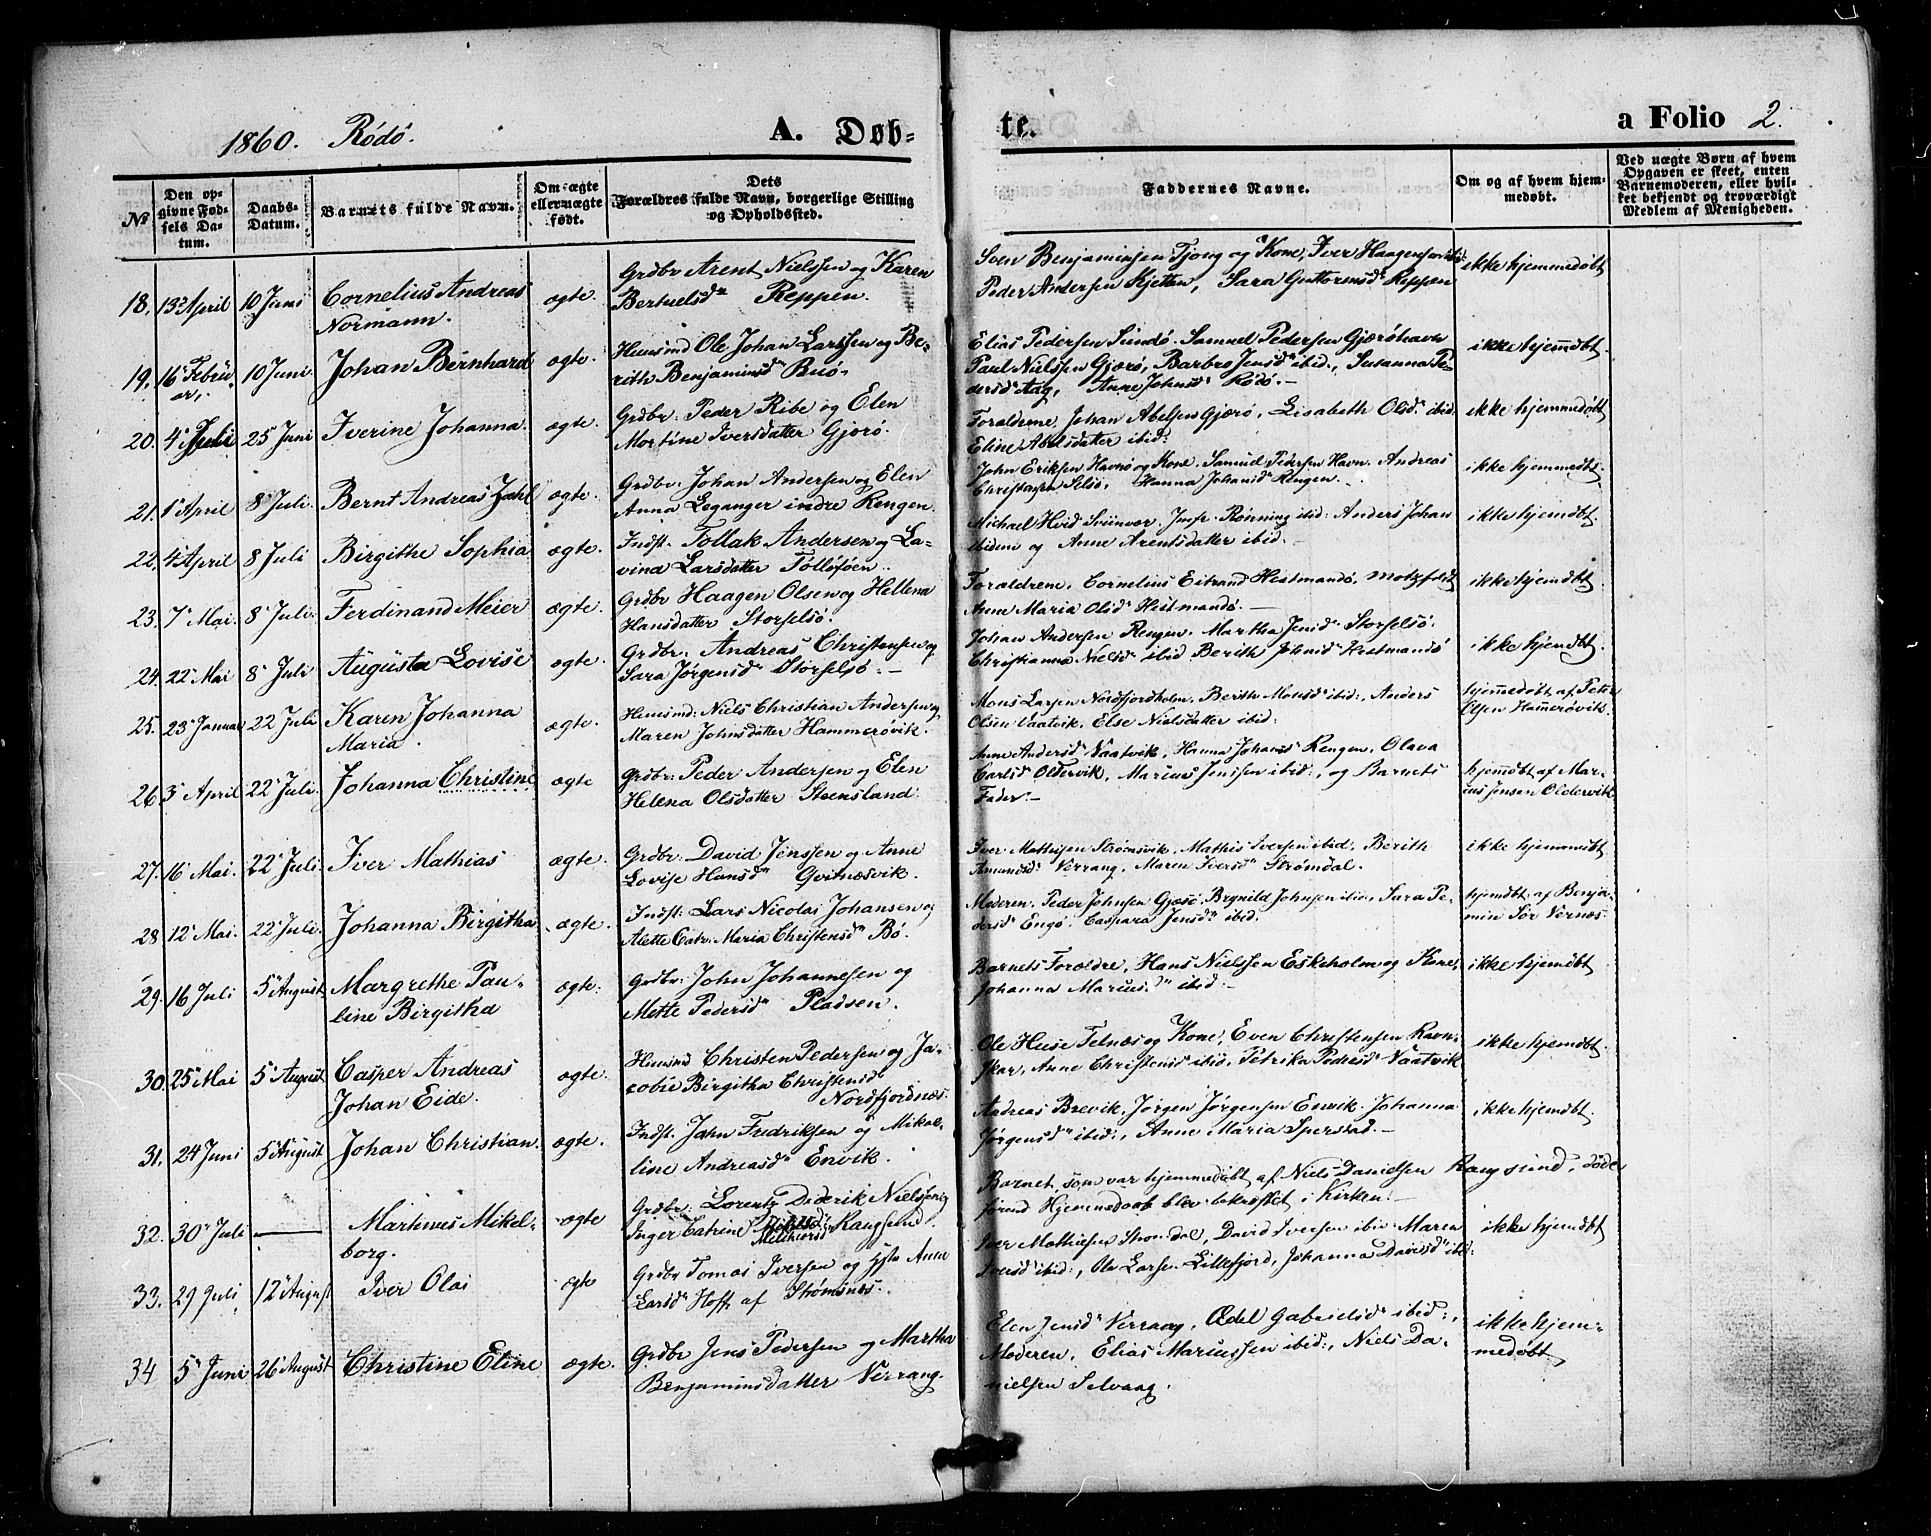 1860. Rødø. A. Døb-
te. a Folio 2.
No
Den op-
givne Fød-
sels Da-
tum.
Daabs-
Datum.
Barnets fulde Navn.
Om ægte
eller uægte
født.
Dets
Forældres fulde Navn, borgerlige Stilling
og Opholdssted.
Faddernes Navne.
Om og af hvem hjem-
medøbt.
Ved uægte Børn af hvem
Opgaven er skeet, enten
Barnemoderen, eller hvil-
ket bekjendt og troværdigt
Medlem af Menigheden.
18. 13 April 10 Juni Cornelius Andreas
Normann. ægte. Grdbr Arent Nielssen og Karen
Bertuelsd Reppen.
Sven Benjaminsen Tjong og Kone, Iver Haagensen ibid:
Peder Andersen Kjetten, Sara Guttormsd Reppen
ikke hjemmedøbt
19. 16 Febru-
ar. 10 Juni. Johan Bernhard ægte. Huusmd Ole Johan Larssen og Be-
rith Benjaminsd Buø.
Elias Pedersen Sundø. Samuel Pedersen Gjærøhavn
Paul Nielssen Gjærø, Barbro Jensd ibid:, Susanna Pe-
dersd Aag, Anne Johnsd Rødø.
ikke hjemdøbt.
20. 4 Juli 25 Juni Iverine Johanna. ægte. Grdbr: Peder Ribe og Elen
Martine Iversdatter Gjærø.
Forældrene, Johan Abelsen Gjærø, Lisabeth Olsd ibid.
Eline Abelsdatter ibid:
ikke hjemmedøbt
21. 1 April 8 Juli. Bernt Andreas Zahl ægte. Grdbr: Johan Andersen og Elen
Anna Leganger indre Rengen.
John Eriksen Havnø og Kone. Samuel Pedersen Havn. Andreas
Christensen Selsø, Hanna Johansd Rengen.
ikke hjemdøbt.
22. 4 April 8 Juli Birgithe Sophia ægte. Indst: Tollak Andersen og La-
vina Larsdatter
Michael Hvid Sviinvær. Jmfr. Rønning ibid: Anders Johan
ibidem og Anne Arentsdatter ibid:
ikke hjemdøbt.
23. 7 Mai. 8 Juli. Ferdinand Meier ægte. Grdbr Haagen Olsen og Hellena
Hansdatter Storselsø.
Forældrene, Cornelius Hestmandø,
Anne Maria Olsd Hestmandø.
ikke hjemdøbt.
24. 22 Mai 8 Juli Augusta Lovise ægte. Grdbr: Andreas Christensen og
Sara Jørgensd Storselsø.
Johan Andersen Rengen. Martha Jensd Storselsø.
Christianna Nielsd ibid Berith Johnsd Hestmandø
ikke hjemdøbt.
25. 23 Januar 22 Juli Karen Johanna
Maria. ægte. Huusmd: Niels Christian Andersen og
Maren Johnsdatter Hammerøvik.
Mons Larsen Nordfjordholm. Berith Monsd ibid:, Anders
Olsen Vaatvik, Else Nielsdatter ibid:
hjemmedøbt af Peter
Elsen Hammerøvik.
26 3 April 22 Juli. Johanna Christine ægte Grdbr: Peder Andersen og Elen
Helena Olsdatter Steensland.
Anne Andersd Vaatvik, Hanna Johansd Rengen, Olava
Carlsd Oldervik, Marius Jenssen ibid:, og Barnets
Fader.
hjemdøbt af Mar-
ius Jensen Oldervik.
27. 16 Mai. 22 Juli. Iver Mathias ægte. Grdbr: David Jenssen og Anne
Lovise Hansd Gvitnæsvik.
Iver Mathisen Strømsvik. Mathis Iversen ibid, Berith
Amundsd Verrang. Maren Iversd Strømdal.
ikke hjemmedøbt
28 12 Mai. 22 Juli. Johanna Birgitha ægte. Indst: Lars Nicolai Johansen og
Alette Catr: Maria Christensd Bø.
Moderen. Peder Johnsen Gjesø. Brynild Johnsen ibid. Sara Pe-
dersd Engø, Caspara Jensd ibid:
hjemdøbt af Benja-
min Sør Vernæs.
29. 16 Juli 5 August Margrethe Pau-
line Birgitha ægte. Grdbr: John Johannesen og
Mette Pedersd Pladsen.
Barnets Forældre, Hans Nielssen Eskeholm og Kone.
Johanna Mariusd ibid:
ikke hjemdøbt
30. 25 Mai 5 August Casper Andreas
Johan Eide. ægte. Huusmd Christen Pedersen og Ja-
cobie Birgitha Christensd
Nordfjordnæs.
Ole Huse Telnæs og Kone, Even Christensen Ravn-
skar, Anne Christensd ibid. Petrika Pedersd Vaatvik
ikke hjemdøbt.
31. 24 Juni 5 August Johan Christian. ægte. Indst: John Fredriksen og Mikal-
line Andreasd Enevik.
Andreas Brevik, Jørgen Jørgensen Envik. Johanna
Jørgensd ibid:, Anne Maria Sperstad.
ikke hjemdøbt.
32. 30 Juli Martines Mikel-
borg. ægte Grdbr: Lorentz Diderik Nielssen og
Inger Catrine Melchiorsd Rangsund.
Barnet som var hjemmedøbt af Niels Danielsen Rangsund, døde
førend Hjemmedaab blev bekræftet i Kirken.
33. 29 Juli 12 August Iver Olai ægte Grdbr Tomas Iversen og Hst Anne
Larsd Hoff af Strømsnæs.
Iver Mathiesen Strømdal, David Iversen ibid Maren
Iversd ibid:, Ole Larsen Lillefjord, Johanna Davidsd ibid:
ikke hjemdøbt
34 5 Juni 26 August Christine Eline ægte. Grdbr Jens Pedersen og Martha
Benjaminsdatter Verrang.
Elen Jensd Verrang, Ædel Gabrielsd ibid:,
Moderen, Elias Mariussen ibid:, Niels Da-
nielsen Selvaag.
ikke hjem-
medøbt